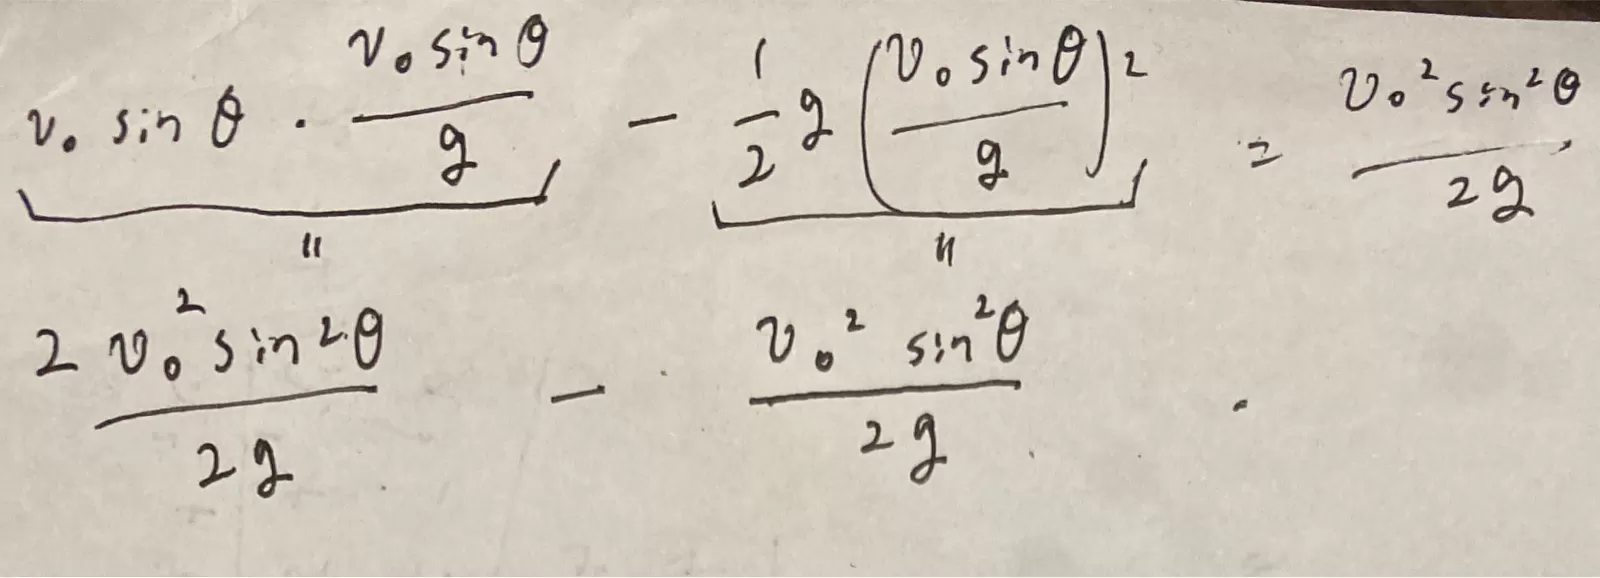 v₀ sin θ · (v₀ sin θ)/g − 1/2 g ((v₀ sin θ)/g)² = (v₀² sin² θ)/(2g)
|| ||
(2 v₀² sin² θ)/(2g) − (v₀² sin² θ)/(2g)